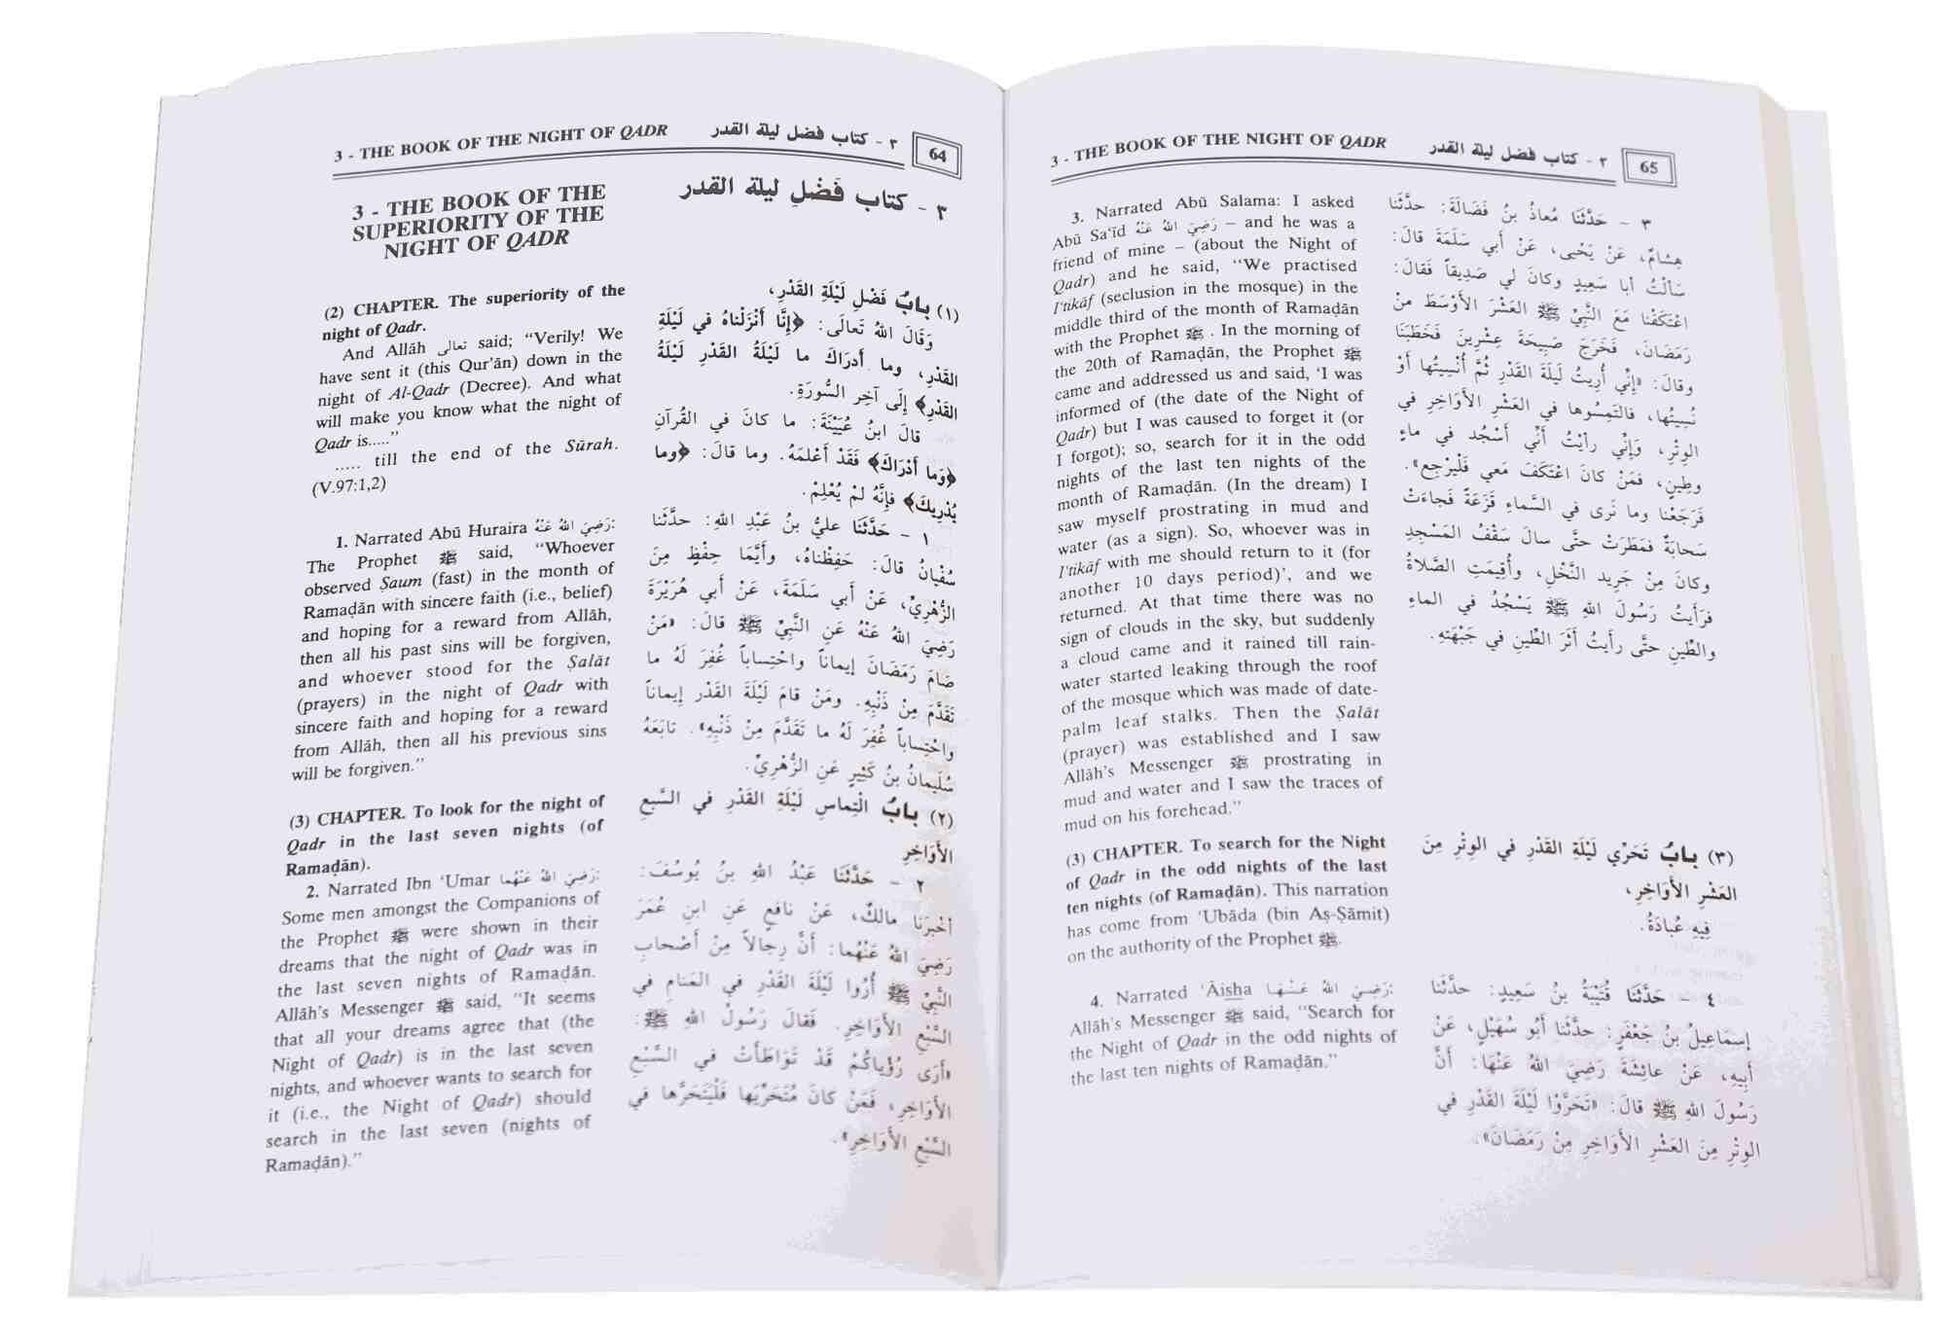 3 - THE BOOK OF THE NIGHT OF QADR
٣ - كتاب فضل ليلة القدر
64
3 - THE BOOK OF THE
SUPERIORITY OF THE
NIGHT OF QADR
(2) CHAPTER. The superiority of the
night of Qadr.
And Allāh تعالى said; “Verily! We
have sent it (this Qur’ān) down in the
night of Al-Qadr (Decree). And what
will make you know what the night of
Qadr is.....”
..... till the end of the Sūrah.
(V.97:1,2)
1. Narrated Abū Huraira رَضِيَ اللهُ عَنْهُ:
The Prophet ﷺ said, “Whoever
observed Ṣaum (fast) in the month of
Ramaḍān with sincere faith (i.e., belief)
and hoping for a reward from Allāh,
then all his past sins will be forgiven,
and whoever stood for the Ṣalāt
(prayers) in the night of Qadr with
sincere faith and hoping for a reward
from Allāh, then all his previous sins
will be forgiven.”
(3) CHAPTER. To look for the night of
Qadr in the last seven nights (of
Ramaḍān).
2. Narrated Ibn ‘Umar رَضِيَ اللهُ عَنْهُما:
Some men amongst the Companions of
the Prophet ﷺ were shown in their
dreams that the night of Qadr was in
the last seven nights of Ramaḍān.
Allāh’s Messenger ﷺ said, “It seems
that all your dreams agree that (the
Night of Qadr) is in the last seven
nights, and whoever wants to search for
it (i.e., the Night of Qadr) should
search in the last seven (nights of
Ramaḍān).”
٣ - كتاب فَضْلِ ليلة القدر
(١) بابُ فَضْلِ لَيْلَةِ القَدْرِ،
وَقَالَ اللهُ تَعالَى: ﴿إِنَّا أَنْزَلْناهُ في لَيْلَةِ
القَدْرِ، وما أَدرَاكَ ما لَيْلَةُ القَدْرِ لَيْلَةُ
القَدْرِ﴾ إلَى آخِرِ السُّورَةِ.
قالَ ابنُ عُيَيْنَةَ: ما كانَ في القُرآنِ
﴿وَما أَدْرَاكَ﴾ فَقَدْ أَعْلَمَهُ. وما قالَ: ﴿وما
يُدْرِيكَ﴾ فإنَّهُ لمْ يُعْلِمْ.
١ - حَدَّثَنا عليُّ بنُ عَبْدِ اللهِ: حدَّثَنا
سُفْيانُ قالَ: حَفِظْناهُ، وأيَّمَا حِفْظٍ مِنَ
الزُّهْرِيِّ، عَنْ أبي سَلَمَةَ، عَنْ أبي هُرَيْرَةَ
رَضِيَ اللهُ عَنْهُ عَنِ النَّبِيِّ ﷺ قالَ: «مَنْ
صَامَ رَمَضَانَ إيماناً واحْتِساباً غُفِرَ لَهُ ما
تَقَدَّمَ مِنْ ذَنْبِهِ. ومَنْ قامَ لَيْلَةَ القَدْرِ إيماناً
واحْتِساباً غُفِرَ لَهُ ما تَقَدَّمَ مِنْ ذَنْبِهِ». تابَعَهُ
سُلَيمانُ بنُ كَثِيرٍ عَنِ الزُّهْرِيِّ.
(٢) بابُ الْتِماسِ لَيْلَةِ القَدْرِ في السَّبْعِ
الأَوَاخِرِ
٢ - حَدَّثَنا عَبْدُ اللهِ بنُ يُوسُفَ:
أخْبَرَنا مالكٌ، عَنْ نافعٍ عَنِ ابنِ عُمَرَ
رَضِيَ اللهُ عَنْهُما: أنَّ رِجالاً مِنْ أصْحابِ
النَّبِيِّ ﷺ أُرُوا لَيْلَةَ القَدْرِ في المَنامِ في
السَّبْعِ الأَوَاخِرِ. فَقالَ رَسُولُ اللهِ ﷺ:
«أرَى رُؤْياكُمْ قَدْ تَوَاطَأَتْ في السَّبْعِ
الأَوَاخِرِ، فَمَنْ كانَ مُتَحَرِّيَها فَلْيَتَحَرَّها في
السَّبْعِ الأَوَاخِرِ».
3 - THE BOOK OF THE NIGHT OF QADR
٣ - كتاب فضل ليلة القدر
65
3. Narrated Abū Salama: I asked
Abū Sa‘īd رَضِيَ اللهُ عَنْهُ – and he was a
friend of mine – (about the Night of
Qadr) and he said, “We practised
I‘tikāf (seclusion in the mosque) in the
middle third of the month of Ramaḍān
with the Prophet ﷺ . In the morning of
the 20th of Ramaḍān, the Prophet ﷺ
came and addressed us and said, ‘I was
informed of (the date of the Night of
Qadr) but I was caused to forget it (or
I forgot); so, search for it in the odd
nights of the last ten nights of the
month of Ramaḍān. (In the dream) I
saw myself prostrating in mud and
water (as a sign). So, whoever was in
I‘tikāf with me should return to it (for
another 10 days period)’, and we
returned. At that time there was no
sign of clouds in the sky, but suddenly
a cloud came and it rained till rain-
water started leaking through the roof
of the mosque which was made of date-
palm leaf stalks. Then the Ṣalāt
(prayer) was established and I saw
Allāh’s Messenger ﷺ prostrating in
mud and water and I saw the traces of
mud on his forehead.”
(3) CHAPTER. To search for the Night
of Qadr in the odd nights of the last
ten nights (of Ramaḍān). This narration
has come from ‘Ubāda (bin Aṣ-Ṣāmit)
on the authority of the Prophet ﷺ.
4. Narrated ‘Āisha رَضِيَ اللهُ عَنْهَا:
Allāh’s Messenger ﷺ said, “Search for
the Night of Qadr in the odd nights of
the last ten nights of Ramaḍān.”
٣ - حَدَّثَنَا مُعاذُ بنُ فَضَالَةَ: حدَّثَنا
هِشامٌ، عَنْ يَحْيى، عَنْ أبي سَلَمَةَ قالَ:
سَألْتُ أبا سَعِيدٍ وكانَ لي صَدِيقاً فَقالَ:
اعْتَكَفْنا مَعَ النَّبِيِّ ﷺ العَشْرَ الأوْسَطَ منْ
رَمَضَانَ، فَخَرَجَ صَبِيحَةَ عِشْرِينَ فَخَطَبَنا
وقالَ: «إنِّي أُرِيتُ لَيْلَةَ القَدْرِ ثُمَّ أُنْسِيتُها أوْ
نُسِيتُها، فالتَمِسُوها في العَشْرِ الأَوَاخِرِ في
الوِتْرِ، وَإنِّي رأيْتُ أنِّي أسْجُد في ماءٍ
وطِينٍ، فمَنْ كانَ اعْتَكَفَ مَعي فَلْيرْجِع».
فَرَجَعْنا وما نَرى في السَّماءِ قَزَعَةً فَجاءَتْ
سَحابَةٌ فمَطَرَتْ حتَّى سالَ سَقْفُ المَسْجِدِ
وكانَ مِنْ جَرِيد النَّخْلِ، وأُقِيمَتِ الصَّلاةُ
فرَأيتُ رَسُولَ اللهِ ﷺ يَسْجُدُ في الماءِ
والطِّينِ حتَّى رأيتُ أثَرَ الطِّينِ في جَبْهَتِهِ.
(٣) بابُ تَحَرِّي لَيْلَةِ القَدْرِ في الوِتْرِ مِنَ
العَشْرِ الأَوَاخِرِ،
فِيهِ عُبادَةُ.
٤ - حَدَّثَنا قُتَيْبَةُ بنُ سَعِيدٍ: حدَّثَنا
إسْماعِيلُ بنُ جَعْفَرٍ: حدَّثَنا أبُو سُهَيْلٍ، عَنْ
أبِيهِ، عَنْ عائِشَةَ رَضِيَ اللهُ عَنْهَا: أنَّ
رَسُولَ اللهِ ﷺ قالَ: «تَحَرَّوْا لَيْلَةَ القَدْرِ في
الوِتْرِ مِنَ العَشْرِ الأوَاخِرِ مِنْ رَمَضَانَ».